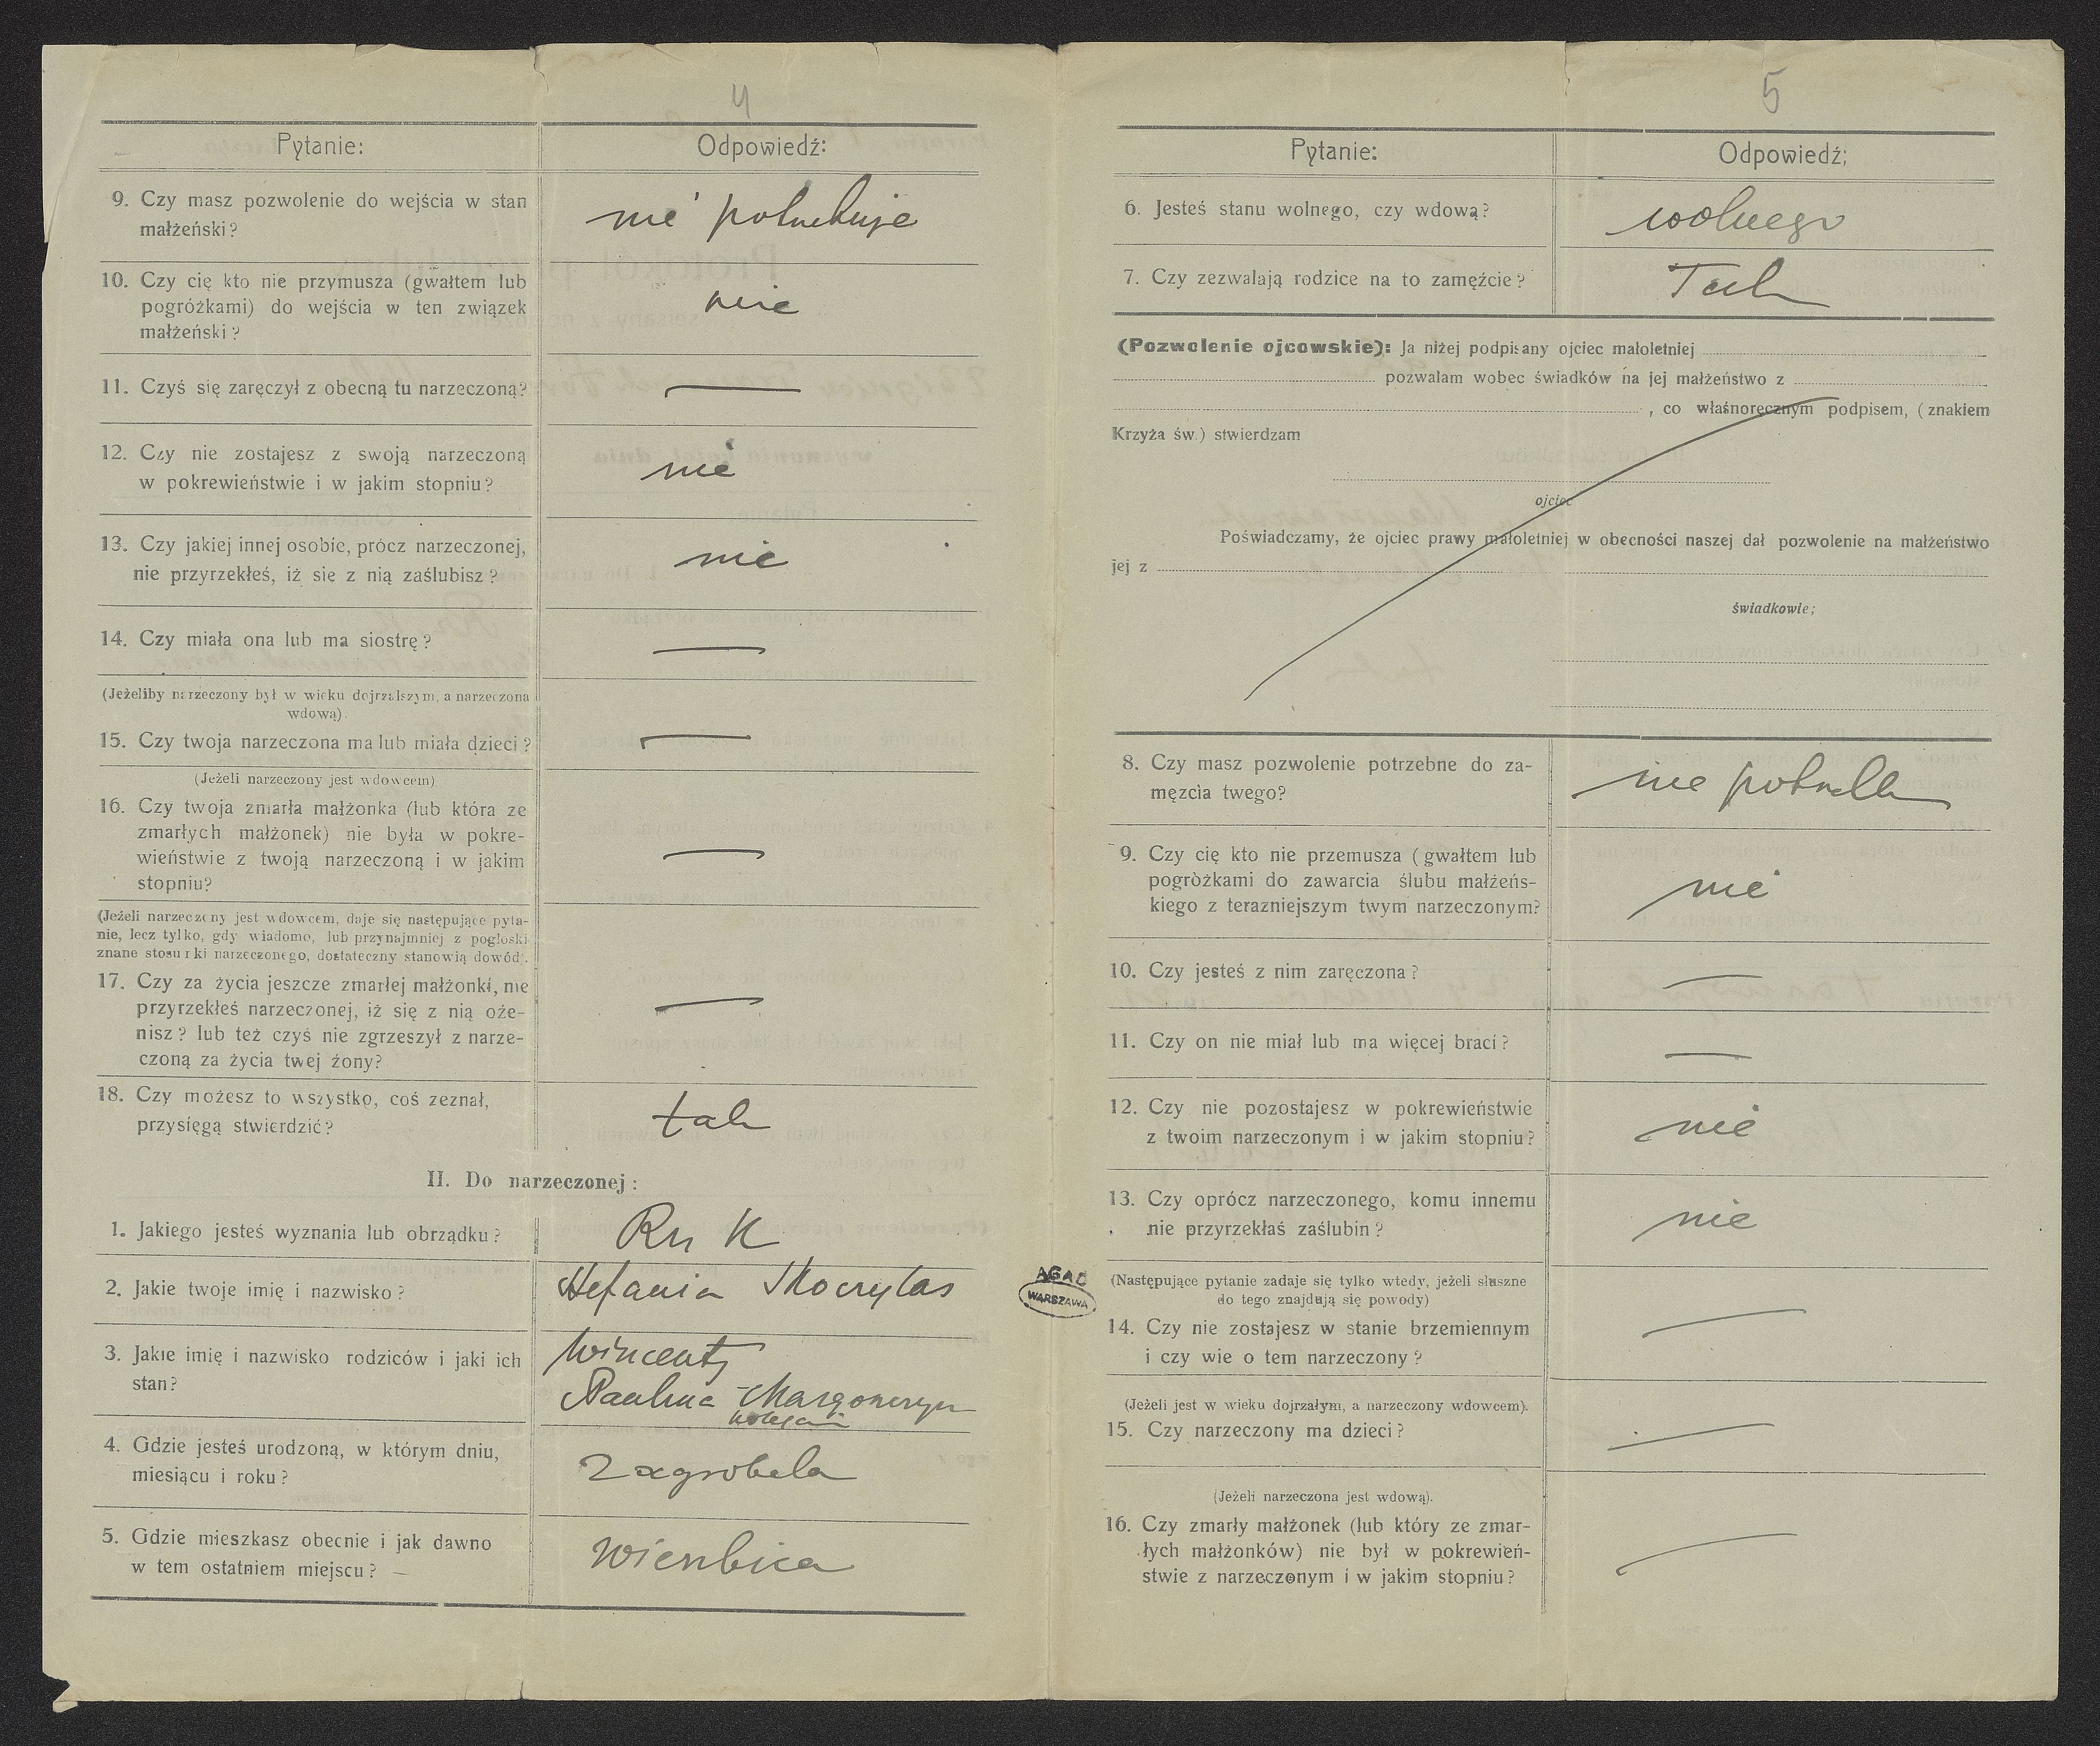 4
Pytanie:
Odpowiedź:
9. Czy masz pozwolenie do wejścia w stan
małżeński?
nie potrzebuje
10. Czy cię kto nie przymusza (gwałtem lub
pogróżkami) do wejścia w ten związek
małżeński?
nie
11. Czyś się zaręczył z obecną tu narzeczoną?
—
12. Czy nie zostajesz z swoją narzeczoną
w pokrewieństwie i w jakim stopniu?
nie
13. Czy jakiej innej osobie, prócz narzeczonej,
nie przyrzekłeś, iż sie z nią zaślubisz?
nie
14. Czy miała ona lub ma siostrę?
—
(Jeżeliby narzeczony był w wieku dojrzalszym, a narzeczona
wdową).
15. Czy twoja narzeczona ma lub miała dzieci?
—
(Jeżeli narzeczony jest wdowcem)
16. Czy twoja zmarła małżonka (lub która ze
zmarłych małżonek) nie była w pokre-
wieństwie z twoją narzeczoną i w jakim
stopniu?
—
(Jeżeli narzeczony jest wdowcem, daje się następujące pyta-
nie, lecz tylko, gdy wiadomo, lub przynajmniej z pogłoski
znane stosunki narzeczonego, dostateczny stanowią dowód).
17. Czy za życia jeszcze zmarłej małżonki, nie
przyrzekłeś narzeczonej, iż się z nią oże-
nisz? lub też czyś nie zgrzeszył z narze-
czoną za życia twej żony?
—
18. Czy możesz to wszystko, coś zeznał,
przysięgą stwierdzić?
tak
II. Do narzeczonej:
1. Jakiego jesteś wyznania lub obrządku?
Rz K
2. Jakie twoje imię i nazwisko?
Stefania Skoczylas
3. Jakie imię i nazwisko rodziców i jaki ich
stan?
Wincenty
Paulina
4. Gdzie jesteś urodzoną, w którym dniu,
miesiącu i roku?
Zagrobela
5. Gdzie mieszkasz obecnie i jak dawno
w tem ostatniem miejscu? —
Wierzbica
5
Pytanie:
Odpowiedź;
6. Jesteś stanu wolnego, czy wdową?
wolnego
7. Czy zezwalają rodzice na to zamęźcie?
Tak
(Pozwolenie ojcowskie): Ja niżej podpisany ojciec małoletniej
pozwalam wobec świadków na jej małżeństwo z
, co własnoręcznym podpisem, (znakiem
Krzyża św.) stwierdzam
ojciec
Poświadczamy, że ojciec prawy małoletniej w obecności naszej dał pozwolenie na małżeństwo
jej z
świadkowie;
8. Czy masz pozwolenie potrzebne do za-
męzcia twego?
nie potrzeba
9. Czy cię kto nie przemusza (gwałtem lub
pogròżkami do zawarcia ślubu małżeńs-
kiego z terazniejszym twym narzeczonym?
nie
10. Czy jesteś z nim zaręczona?
—
11. Czy on nie miał lub ma więcej braci?
—
12. Czy nie pozostajesz w pokrewieństwie
z twoim narzeczonym i w jakim stopniu?
nie
13. Czy oprócz narzeczonego, komu innemu
nie przyrzekłaś zaślubin?
nie
AGAD
WARSZAWA
(Następujące pytanie zadaje się tylko wtedy, jeżeli słuszne
do tego znajdują się powody)
14. Czy nie zostajesz w stanie brzemiennym
i czy wie o tem narzeczony?
—
(Jeżeli jest w wieku dojrzałym, a narzeczony wdowcem).
15. Czy narzeczony ma dzieci?
—
(Jeżeli narzeczona jest wdową).
16. Czy zmarły małżonek (lub który ze zmar-
łych małżonków) nie był w pokrewień-
stwie z narzeczonym i w jakim stopniu?
—